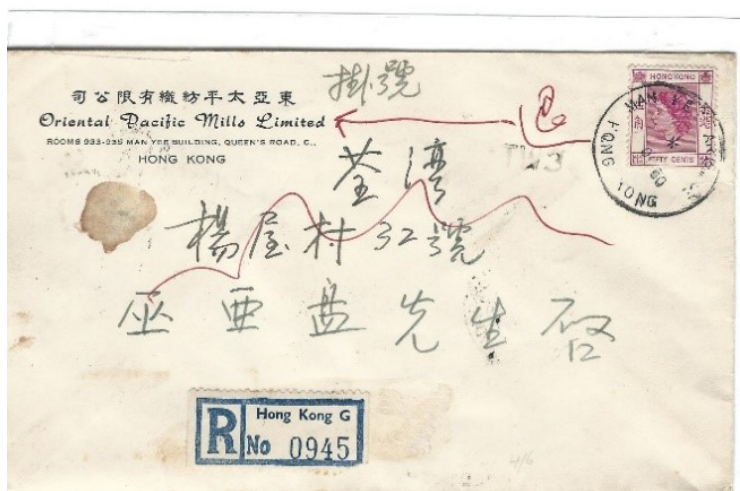 東亞太平紡織有限公司
Oriental Pacific Mills Limited
ROOMS 933-935 MAN YEE BUILDING, QUEEN'S ROAD, C.,
HONG KONG
掛號
退
HONG KONG
FIFTY CENTS
HONG KONG
60
荃灣
楊屋村32號
巫亞先生啓
R
Hong Kong G
No 0945